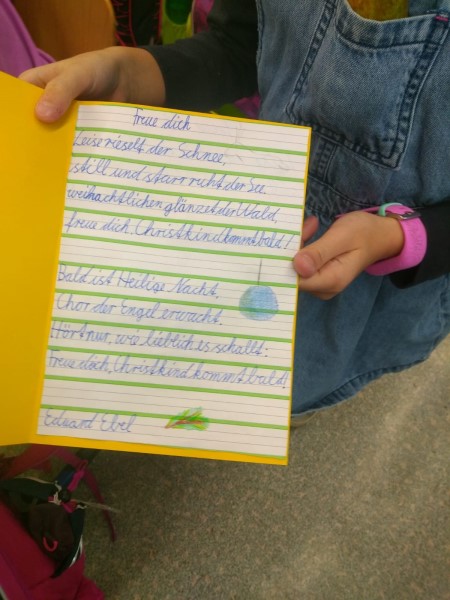 Freue dich
Leise rieselt der Schnee,
still und starr ruht der See
weihnachtlichen glänzet der Wald,
freue dich, Christkind kommt bald!
Bald ist Heilige Nacht,
Chor der Engel erwacht.
Hört nur, wie lieblich es schallt:
Freue dich, Christkind kommt bald!
Eduard Ebel